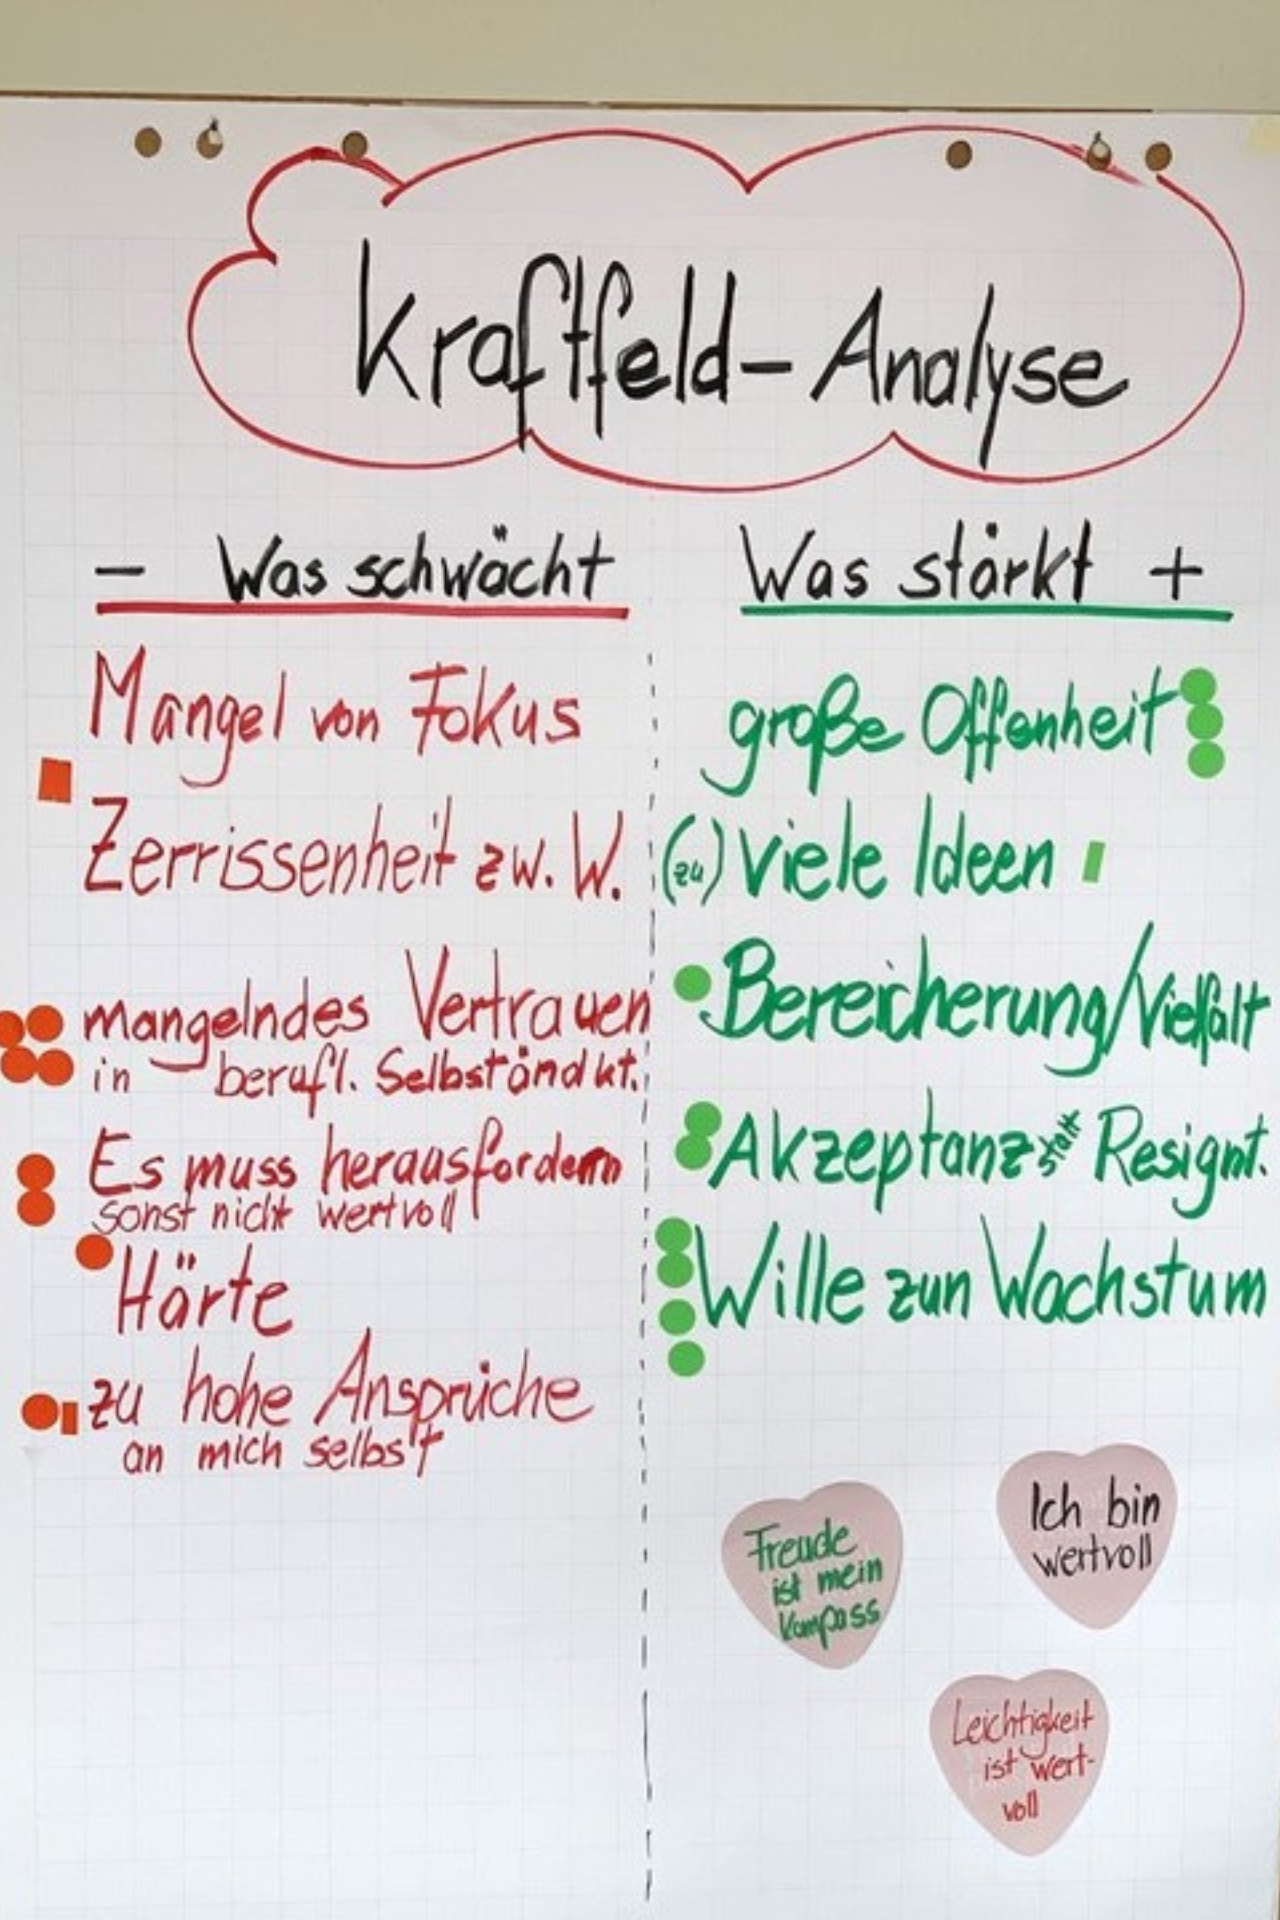 Kraftfeld-Analyse
- Was schwächt
Mangel von Fokus
Zerrissenheit zw. W.
mangelndes Vertrauen
in berufl. Selbständkt.
Es muss herausfordern
sonst nicht wertvoll
Härte
zu hohe Ansprüche
an mich selbst
Was stärkt +
große Offenheit
(zu) viele Ideen
Bereicherung/Vielfalt
Akzeptanz statt Resignt.
Wille zun Wachstum
Freude
ist mein
Kompass
Ich bin
wertvoll
Leichtigkeit
ist wert-
voll